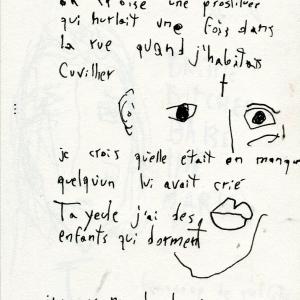 on croise une prostituée
qui hurlait une fois dans
la rue quand j'habitais
Cuvillier
je crois qu'elle était en manque
quelqu'un lui avait crié
Ta yeule j'ai des
enfants qui dorment